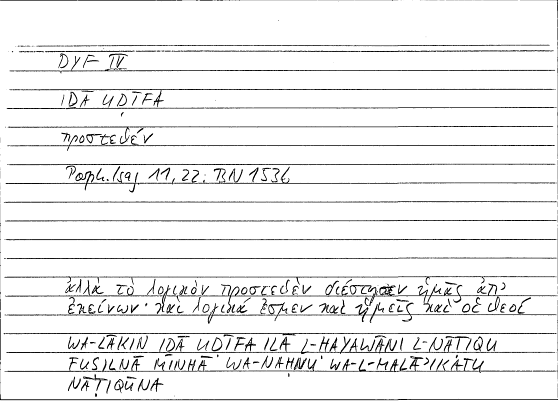 ḌYF IV
IḎĀ UḌĪFA
προστεθέν
Porph. Isag 11, 22: BN 153b
ἀλλὰ τὸ λογικὸν προστεθὲν διέστησεν ἡμᾶς ἀπ'
ἐκείνων· καὶ λογικά ἐσμεν καὶ ἡμεῖς καὶ οἱ θεοί
WA-LĀKIN IḎĀ UḌĪFA ILĀ L-ḤAYAWĀNI L-NĀṬIQU
FUṢILNĀ MINHĀ WA-NAḤNU WA-L-MALĀʾIKATU
NĀṬIQŪNA